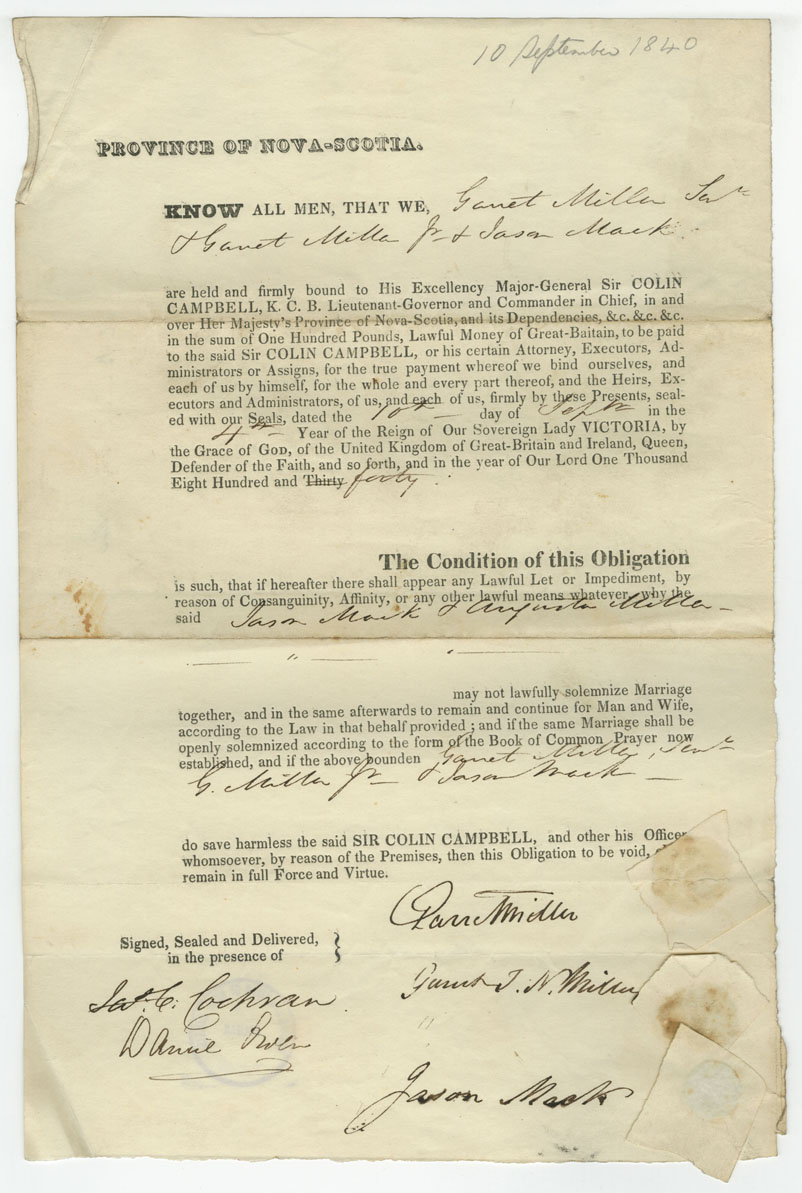 10 September 1840
PROVINCE OF NOVA-SCOTIA.
KNOW ALL MEN, THAT WE, Garret Miller Senr
& Garret Miller Jr & Jason Mack.
are held and firmly bound to His Excellency Major-General Sir COLIN
CAMPBELL, K. C. B. Lieutenant-Governor and Commander in Chief, in and
over Her Majesty's Province of Nova-Scotia, and its Dependencies, &c. &c. &c.
in the sum of One Hundred Pounds, Lawful Money of Great-Britain, to be paid
to the said Sir COLIN CAMPBELL, or his certain Attorney, Executors, Ad-
ministrators or Assigns, for the true payment whereof we bind ourselves, and
each of us by himself, for the whole and every part thereof, and the Heirs, Ex-
ecutors and Administrators, of us, and each of us, firmly by these Presents, seal-
ed with our Seals, dated the 10th day of Septr in the
4th Year of the Reign of Our Sovereign Lady VICTORIA, by
the Grace of GOD, of the United Kingdom of Great-Britain and Ireland, Queen,
Defender of the Faith, and so forth, and in the year of Our Lord One Thousand
Eight Hundred and Thirty forty.
The Condition of this Obligation
is such, that if hereafter there shall appear any Lawful Let or Impediment, by
reason of Consanguinity, Affinity, or any other lawful means whatever, why the
said Jason Mack & Augusta Miller
may not lawfully solemnize Marriage
together, and in the same afterwards to remain and continue for Man and Wife,
according to the Law in that behalf provided; and if the same Marriage shall be
openly solemnized according to the form of the Book of Common Prayer now
established, and if the above bounden Garret Miller, Senr
G. Miller Jr & Jason Mack
do save harmless the said SIR COLIN CAMPBELL, and other his Officer
whomsoever, by reason of the Premises, then this Obligation to be void,
remain in full Force and Virtue.
Garret Miller
Signed, Sealed and Delivered,
in the presence of
Garret T. N. Miller
Jas. C. Cochran.
Daniel Owen
Jason Mack